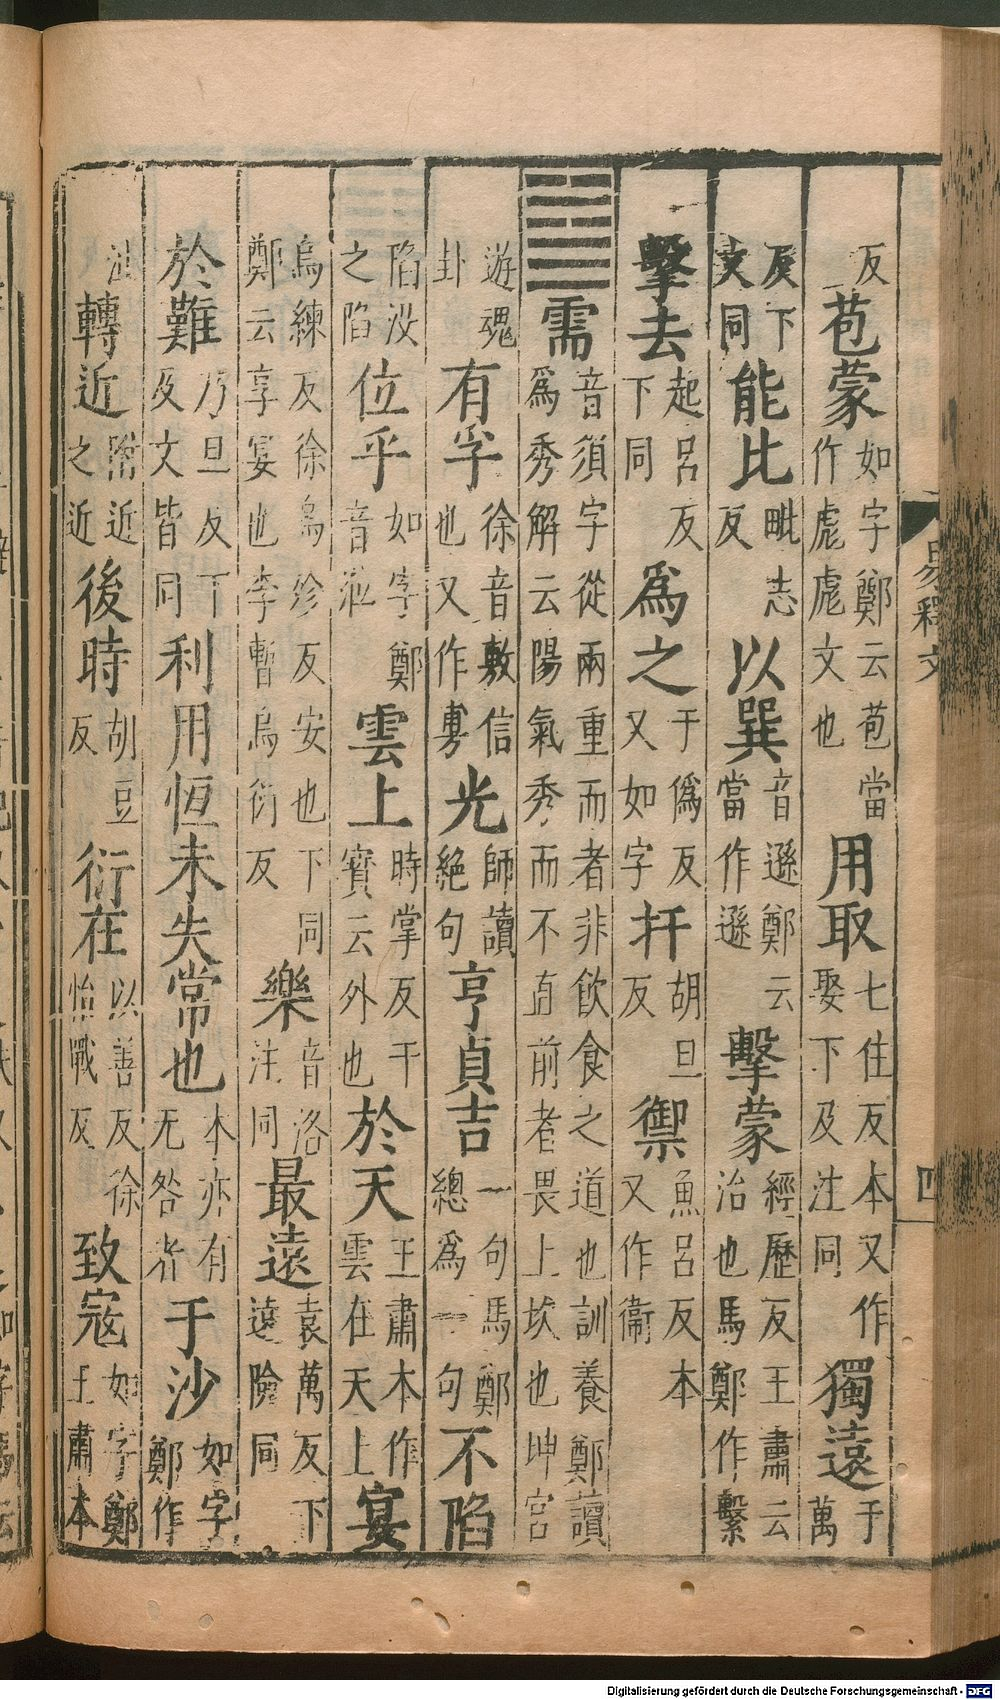 易釋文
四
反苞蒙如字鄭云苞當作彪彪文也用取七住反本又作娶下及注同獨遠于萬
反下文同能比毗志反以巽音遜鄭云當作遜擊蒙經歷反王肅云治也馬鄭作繫
擊去起呂反下同爲之于僞反又如字扞胡旦反禦魚呂反本又作衞
䷄需音須字從兩重而者非飲食之道也訓養鄭讀爲秀解云陽氣秀而不直前者畏上坎也坤宮
遊魂卦有孚徐音敷信也又作旉光師讀絕句亨貞吉一句馬鄭總爲一句不陷
陷沒之陷位乎如字鄭音涖雲上時掌反干寶云外也於天王肅本作雲在天上宴
烏練反徐烏殄反安也下同鄭云享宴也李暫烏衍反樂音洛注同最遠袁萬反下遠險同
於難乃旦反下及文皆同利用恒未失常也本亦有无咎者于沙如字鄭作
沚轉近附近之近後時胡豆反衍在以善反徐怡戰反致寇如字鄭王肅本
Digitalisierung gefördert durch die Deutsche Forschungsgemeinschaft - DFG